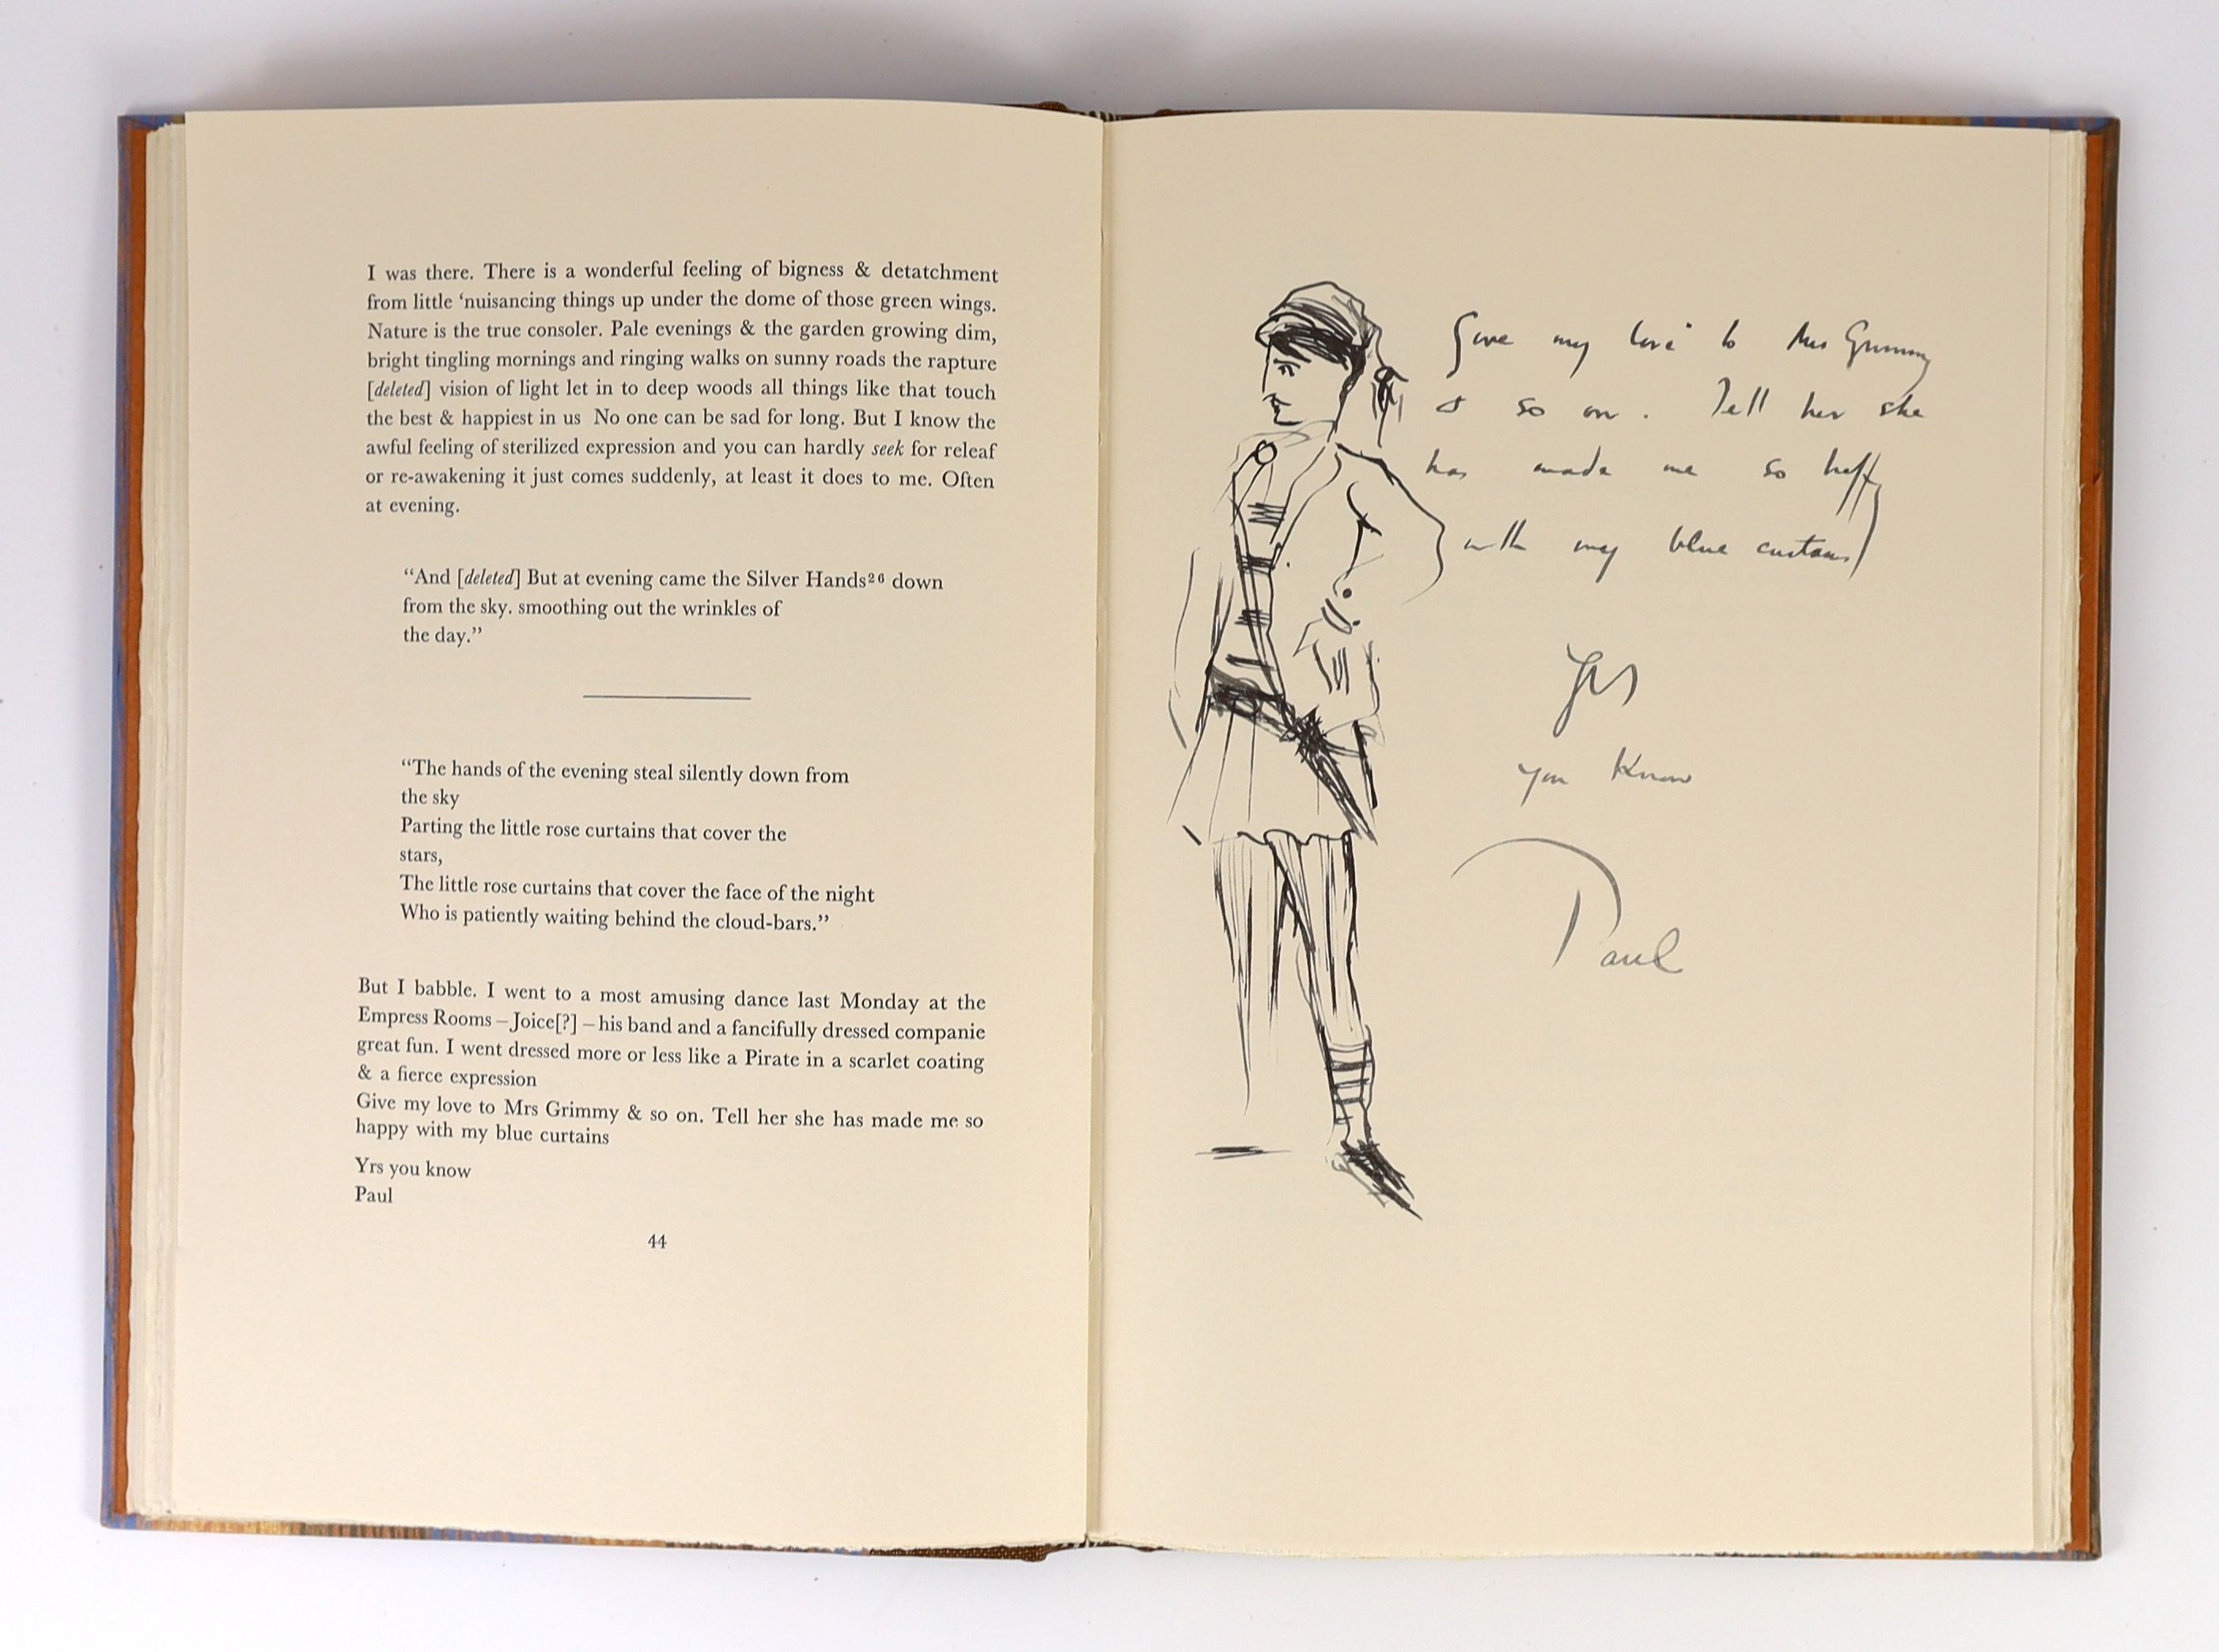 I was there. There is a wonderful feeling of bigness & detatchment
from little ‘nuisancing things up under the dome of those green wings.
Nature is the true consoler. Pale evenings & the garden growing dim,
bright tingling mornings and ringing walks on sunny roads the rapture
[deleted] vision of light let in to deep woods all things like that touch
the best & happiest in us No one can be sad for long. But I know the
awful feeling of sterilized expression and you can hardly seek for releaf
or re-awakening it just comes suddenly, at least it does to me. Often
at evening.
“And [deleted] But at evening came the Silver Hands²⁶ down
from the sky. smoothing out the wrinkles of
the day.”
“The hands of the evening steal silently down from
the sky
Parting the little rose curtains that cover the
stars,
The little rose curtains that cover the face of the night
Who is patiently waiting behind the cloud-bars.”
But I babble. I went to a most amusing dance last Monday at the
Empress Rooms – Joice[?] – his band and a fancifully dressed companie
great fun. I went dressed more or less like a Pirate in a scarlet coating
& a fierce expression
Give my love to Mrs Grimmy & so on. Tell her she has made me so
happy with my blue curtains
Yrs you know
Paul
44
Give my love to Mrs Grimmy
& so on. Tell her she
has made me so happy
with my blue curtains
Yrs
you know
Paul